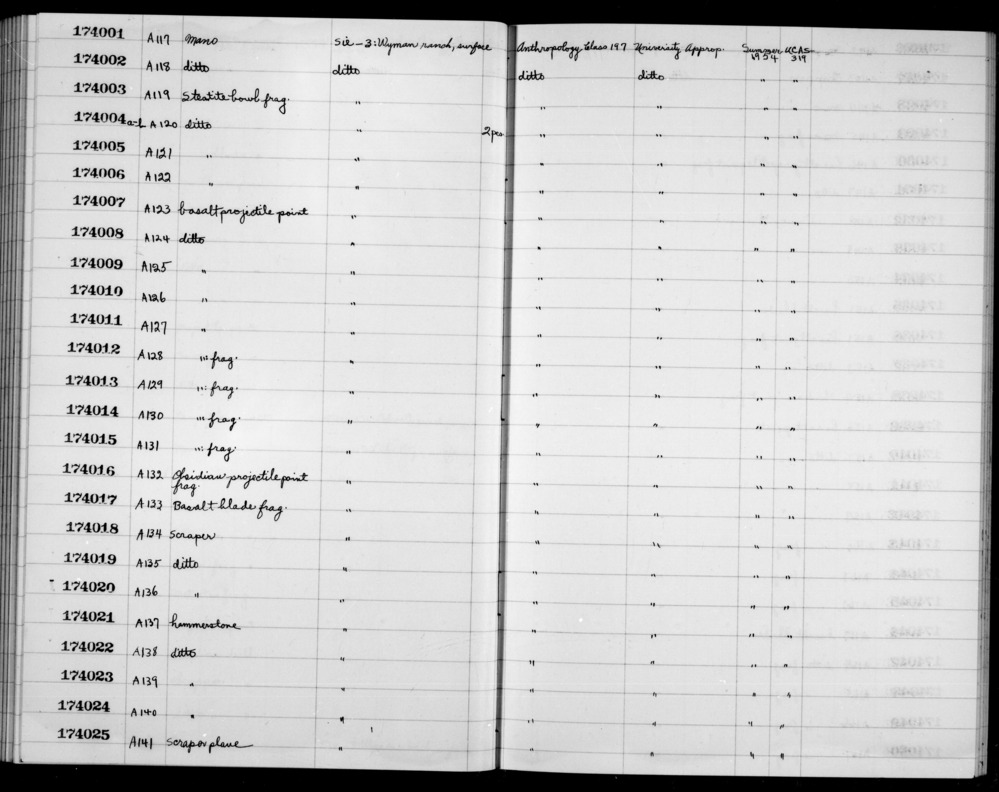 174001 A117 Mano Sie-3: Wyman ranch, surface Anthropology Class 197 University Approp. Summer 1954 UCAS 319
174002 A118 ditto ditto ditto ditto " "
174003 A119 Steatite bowl frag. " " " " "
174004 a-b A120 ditto " 2 pcs " " " "
174005 A121 " " " " " "
174006 A122 " " " " " "
174007 A123 basalt projectile point " " " " "
174008 A124 ditto " " " " "
174009 A125 " " " " " "
174010 A126 " " " " " "
174011 A127 " " " " " "
174012 A128 " : frag. " " " " "
174013 A129 " : frag. " " " " "
174014 A130 " : frag. " " " " "
174015 A131 " : frag. " " " " "
174016 A132 Obsidian projectile point " " " " "
frag.
174017 A133 Basalt blade frag. " " " " "
174018 A134 Scraper " " " " "
174019 A135 ditto " " " " "
174020 A136 " " " " " "
174021 A137 hammerstone " " " " "
174022 A138 ditto " " " " "
174023 A139 " " " " " "
174024 A140 " " " " " "
174025 A141 Scraper plane " " " " "